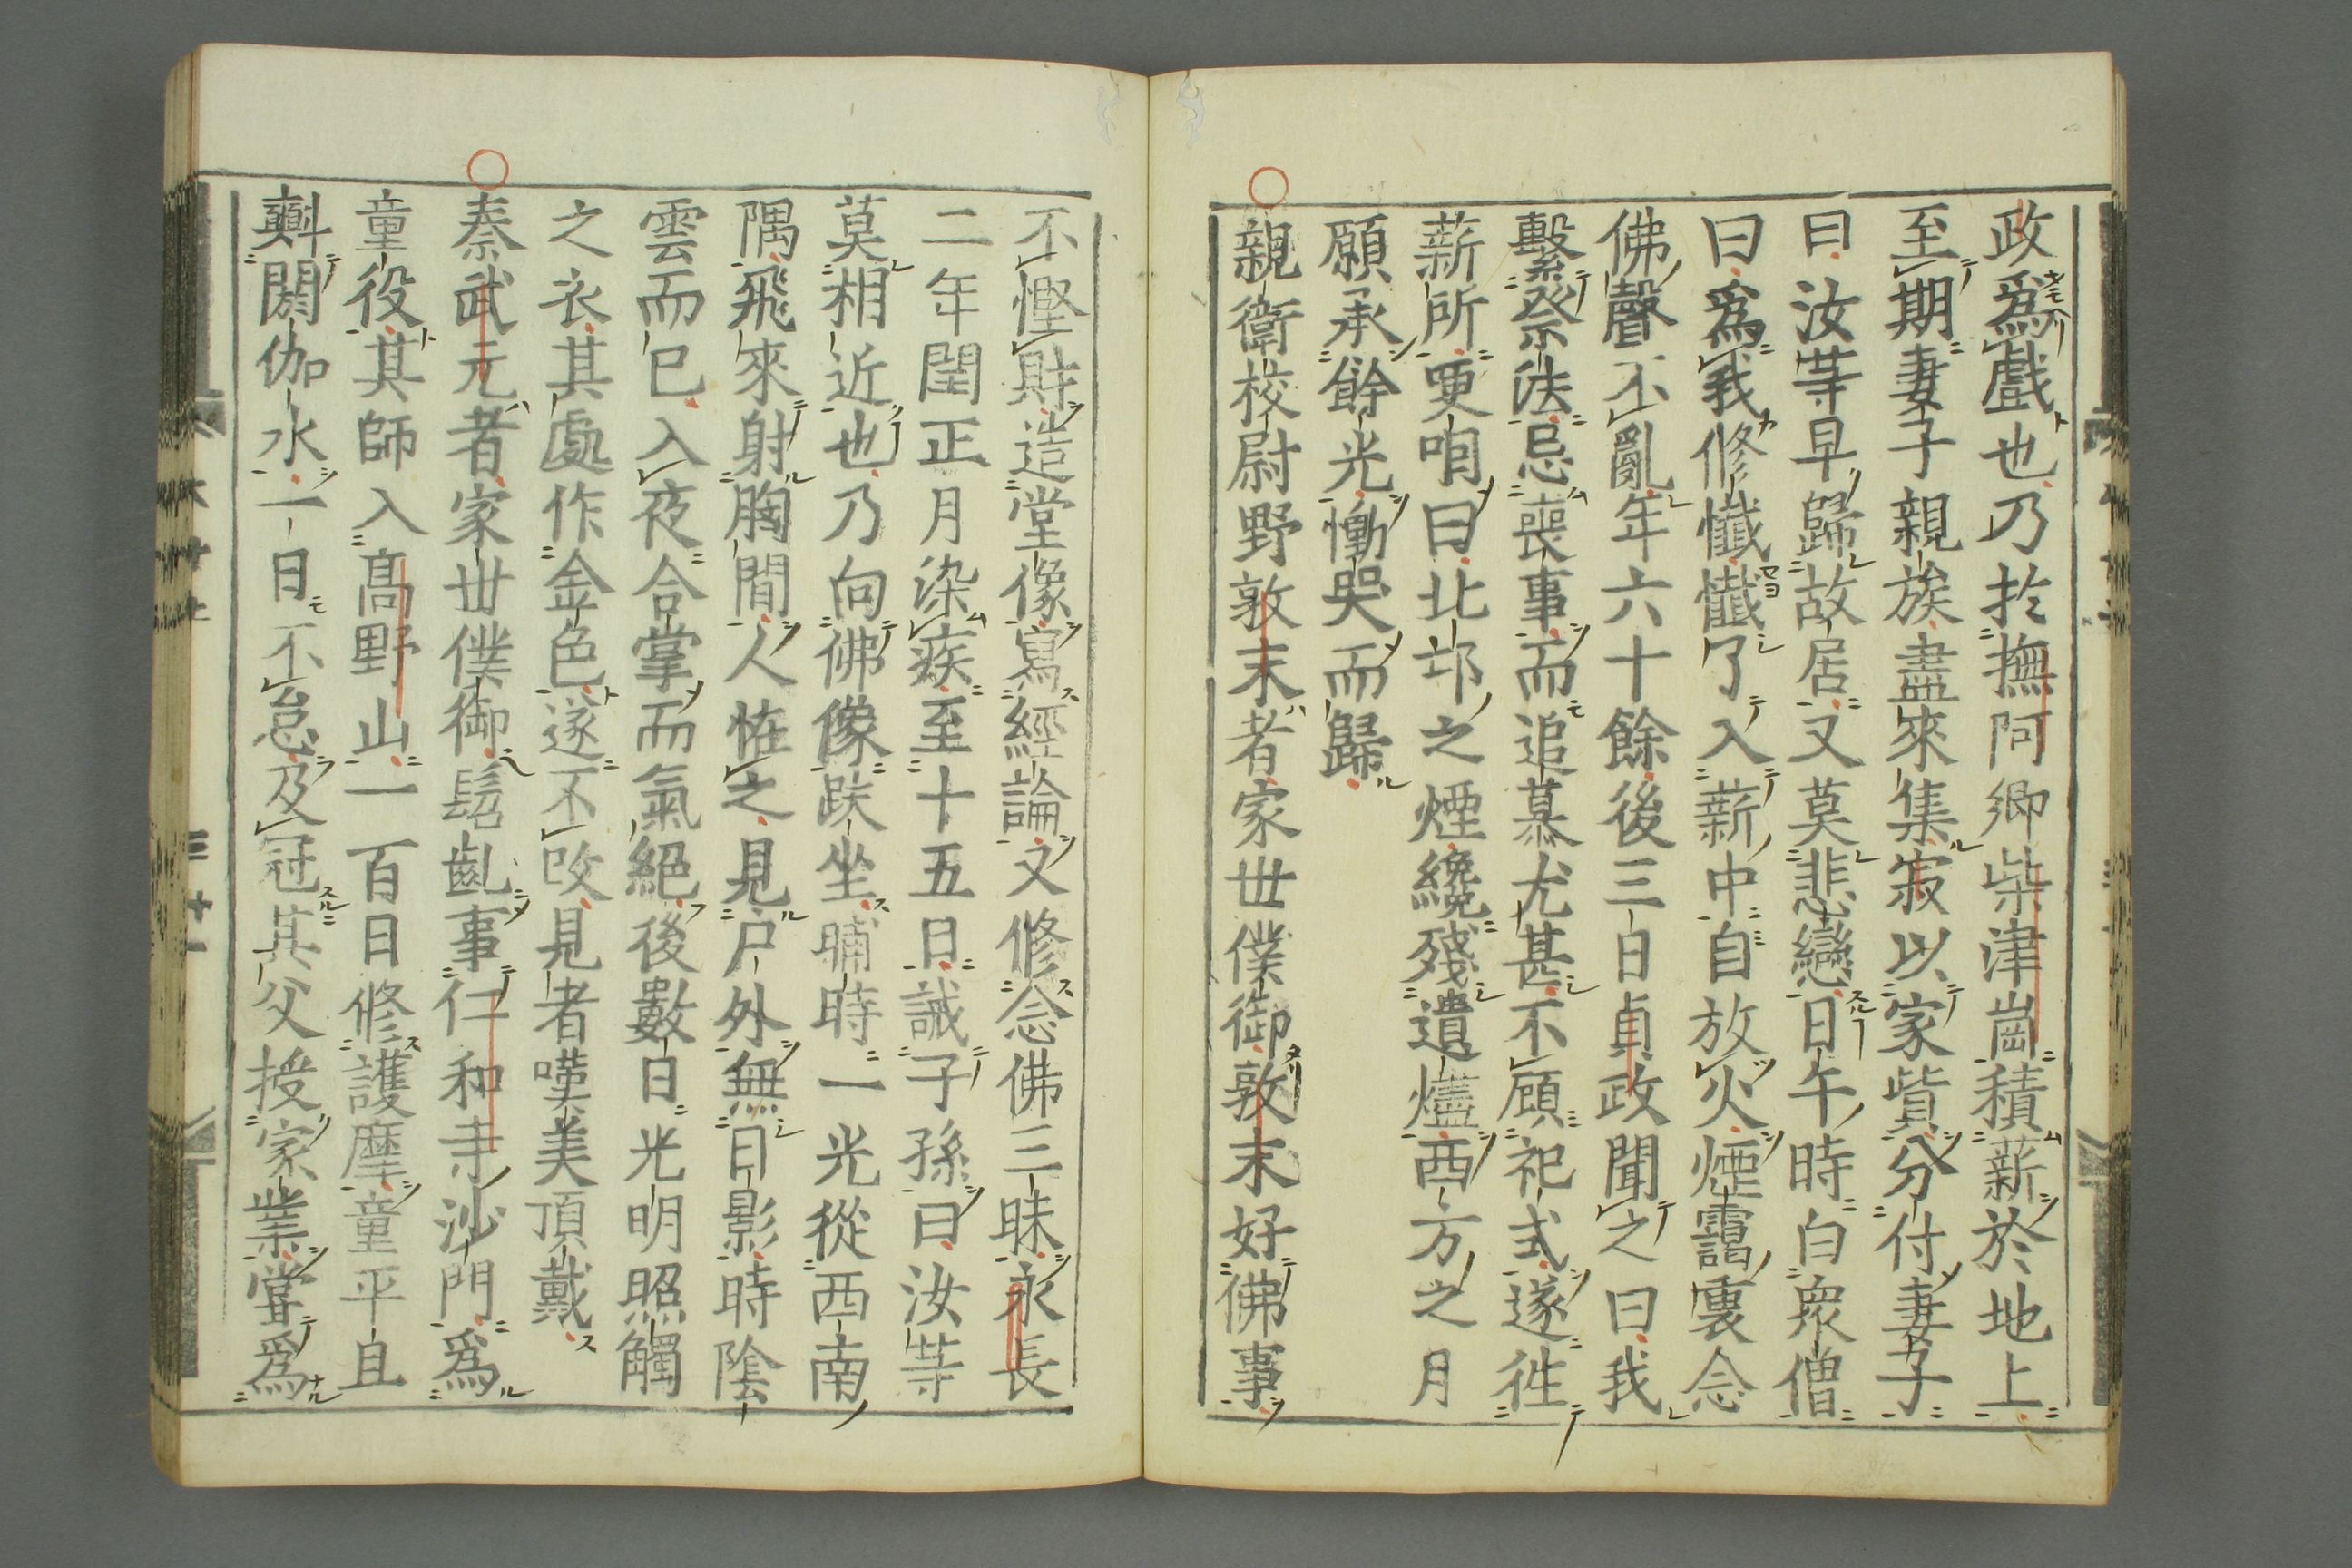 政爲戲也乃於撫阿鄉柴津崗積薪於地上
至期妻子親族盡來集寂以家貲分付妻子
曰汝等早歸故居又莫悲戀日午時白衆僧
曰爲我修懺懺了入薪中自放火煙靄裏念
佛聲不亂年六十餘後三日貞政聞之曰我
繫祭法忌喪事而追慕尤甚不顧祀式遂徃
薪所哽咽曰北邙之煙纔殘遺燼西方之月
願承餘光慟哭而歸
親衛校尉野敦末者家世僕御敦末好佛事
不慳財造堂像寫經論又修念佛三昧永長
二年閏正月染疾至十五日誡子孫曰汝等
莫相近也乃向佛像趺坐晡時一光從西南
隅飛來射胸間人恠之見户外無日影時陰
雲而已入夜合掌而氣絕後數日光明照觸
之衣其處作金色遂不改見者嘆美頂戴
秦武元者家世僕御髫齓事仁和寺沙門爲
童役其師入高野山一百日修護摩童平旦
𣂏閼伽水一日不怠及冠其父授家業當爲